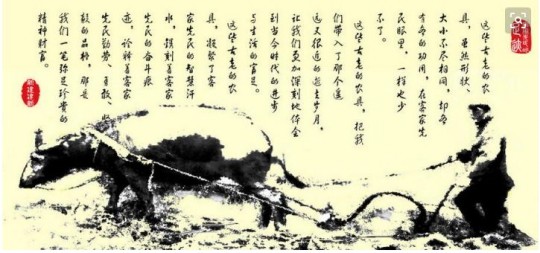 这些古老的农
具，虽然形状、
大小不尽相同，却各
有各的功用，在客家先
民眼里，一样也少
不了。
这些古老的农具，把我
们带入了那个遥
远又很近的逝去岁月，
让我们更加深刻地体会
到当今时代的进步
与生活的富足。
这些古老的农
具，凝聚了客
家先民的智慧汗
水，镌刻着客家
先民的奋斗痕
迹，诠释着客家
先民勤劳、勇敢、坚
毅的品格，那是
我们一笔弥足珍贵的
精神财富。